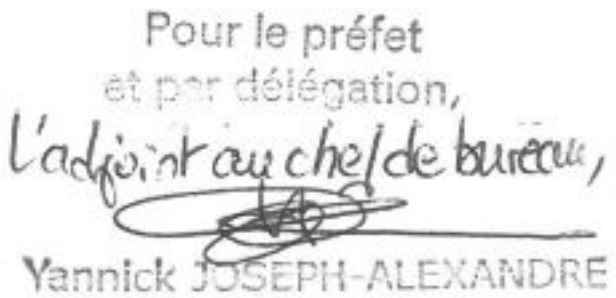 Pour le préfet
et par délégation,
L'adjoint au chef de bureau,
Yannick JOSEPH-ALEXANDRE